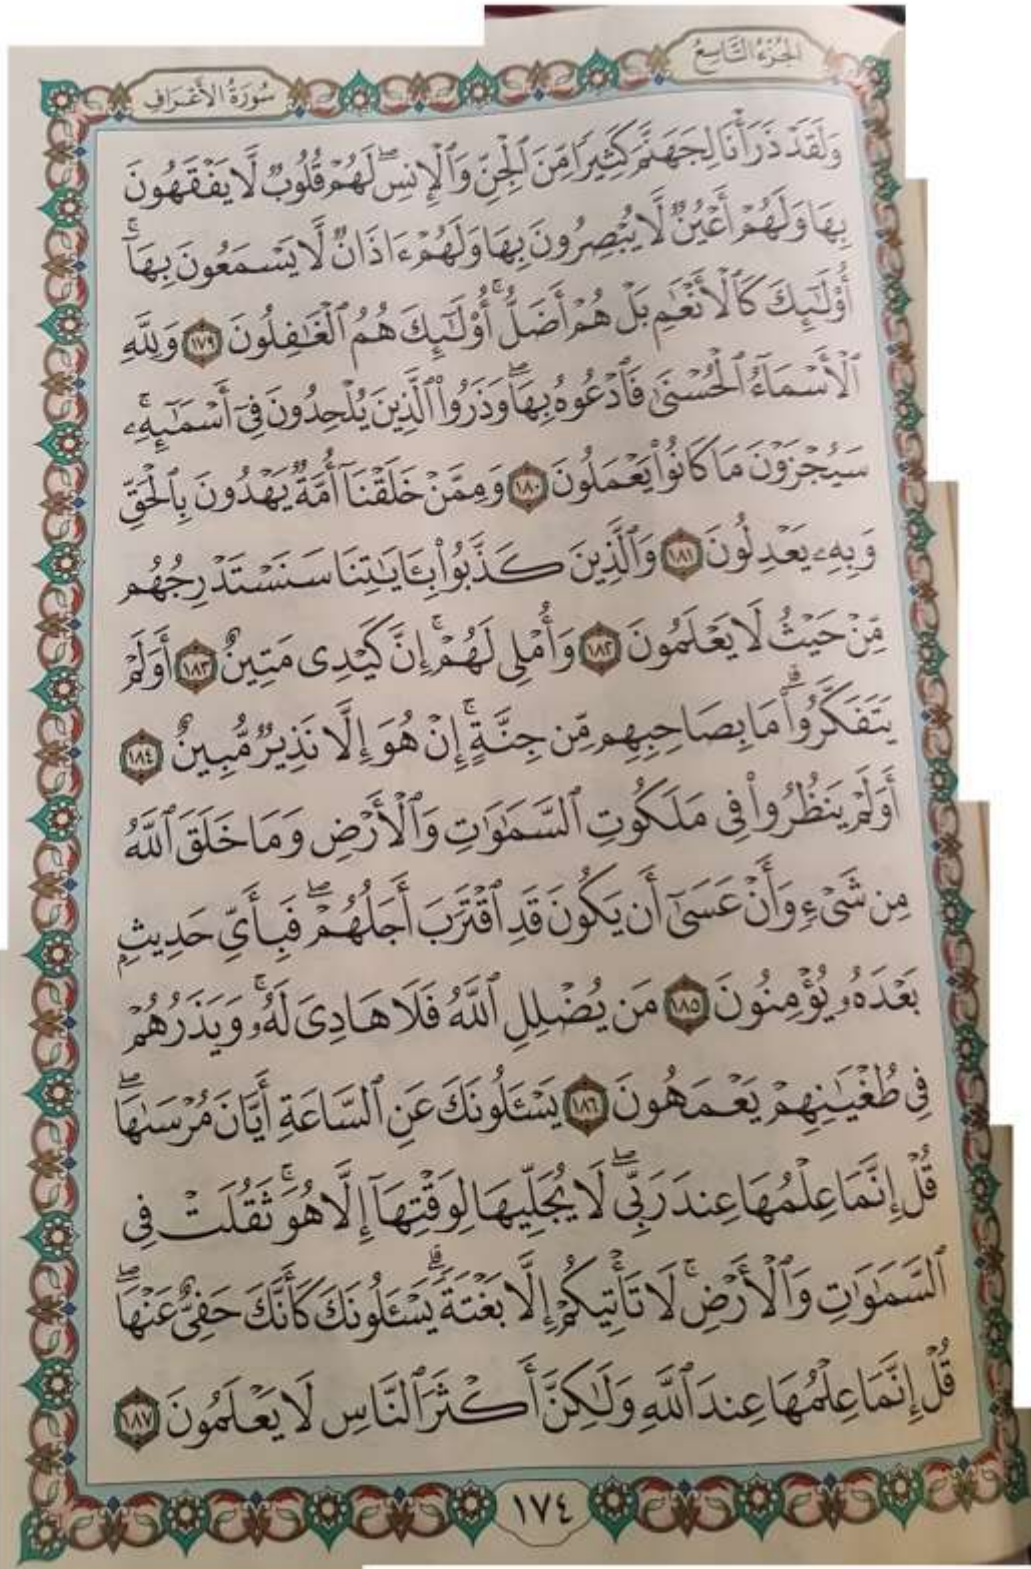 الجُزْءُ التَّاسِعُ
سُورَةُ الأَعْرَافِ
وَلَقَدْ ذَرَأْنَا لِجَهَنَّمَ كَثِيرًا مِّنَ ٱلْجِنِّ وَٱلْإِنسِۖ لَهُمْ قُلُوبٌ لَّا يَفْقَهُونَ
بِهَا وَلَهُمْ أَعْيُنٌ لَّا يُبْصِرُونَ بِهَا وَلَهُمْ ءَاذَانٌ لَّا يَسْمَعُونَ بِهَآۚ
أُوْلَٰٓئِكَ كَٱلْأَنْعَٰمِ بَلْ هُمْ أَضَلُّۚ أُوْلَٰٓئِكَ هُمُ ٱلْغَٰفِلُونَ ١٧٩ وَلِلَّهِ
ٱلْأَسْمَآءُ ٱلْحُسْنَىٰ فَٱدْعُوهُ بِهَاۖ وَذَرُواْ ٱلَّذِينَ يُلْحِدُونَ فِىٓ أَسْمَٰٓئِهِۦۚ
سَيُجْزَوْنَ مَا كَانُواْ يَعْمَلُونَ ١٨٠ وَمِمَّنْ خَلَقْنَآ أُمَّةٌ يَهْدُونَ بِٱلْحَقِّ
وَبِهِۦ يَعْدِلُونَ ١٨١ وَٱلَّذِينَ كَذَّبُواْ بِـَٔايَٰتِنَا سَنَسْتَدْرِجُهُم
مِّنْ حَيْثُ لَا يَعْلَمُونَ ١٨٢ وَأُمْلِى لَهُمْۚ إِنَّ كَيْدِى مَتِينٌ ١٨٣ أَوَلَمْ
يَتَفَكَّرُواْۗ مَا بِصَاحِبِهِم مِّن جِنَّةٍۚ إِنْ هُوَ إِلَّا نَذِيرٌ مُّبِينٌ ١٨٤
أَوَلَمْ يَنظُرُواْ فِى مَلَكُوتِ ٱلسَّمَٰوَٰتِ وَٱلْأَرْضِ وَمَا خَلَقَ ٱللَّهُ
مِن شَىْءٍ وَأَنْ عَسَىٰٓ أَن يَكُونَ قَدِ ٱقْتَرَبَ أَجَلُهُمْۖ فَبِأَىِّ حَدِيثٍۭ
بَعْدَهُۥ يُؤْمِنُونَ ١٨٥ مَن يُضْلِلِ ٱللَّهُ فَلَا هَادِىَ لَهُۥۚ وَيَذَرُهُمْ
فِى طُغْيَٰنِهِمْ يَعْمَهُونَ ١٨٦ يَسْـَٔلُونَكَ عَنِ ٱلسَّاعَةِ أَيَّانَ مُرْسَىٰهَاۖ
قُلْ إِنَّمَا عِلْمُهَا عِندَ رَبِّىۖ لَا يُجَلِّيهَا لِوَقْتِهَآ إِلَّا هُوَۚ ثَقُلَتْ فِى
ٱلسَّمَٰوَٰتِ وَٱلْأَرْضِۚ لَا تَأْتِيكُمْ إِلَّا بَغْتَةًۗ يَسْـَٔلُونَكَ كَأَنَّكَ حَفِىٌّ عَنْهَاۖ
قُلْ إِنَّمَا عِلْمُهَا عِندَ ٱللَّهِ وَلَٰكِنَّ أَكْثَرَ ٱلنَّاسِ لَا يَعْلَمُونَ ١٨٧
١٧٤